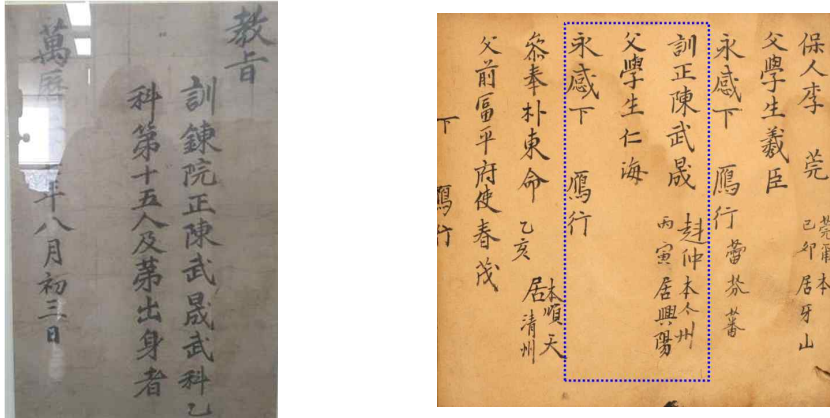 教旨
訓鍊院正陳武晟武科乙
科第十五人及苐出身者
萬曆年八月初三日
保人李莞
己卯居牙山
父學生羲臣
永感下 鴈行 蕾芬蕃
訓正陳武晟
赳仲本州
丙寅居興陽
父學生仁海
永感下 鴈行
叅奉朴東命 乙亥
本順天
居清州
父前富平府使春茂
下 鴈行